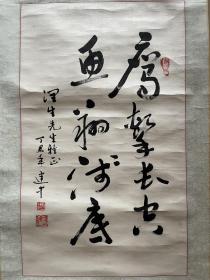 鹰击长空
鱼翔浅底
泽生先生雅正
丁丑年建中